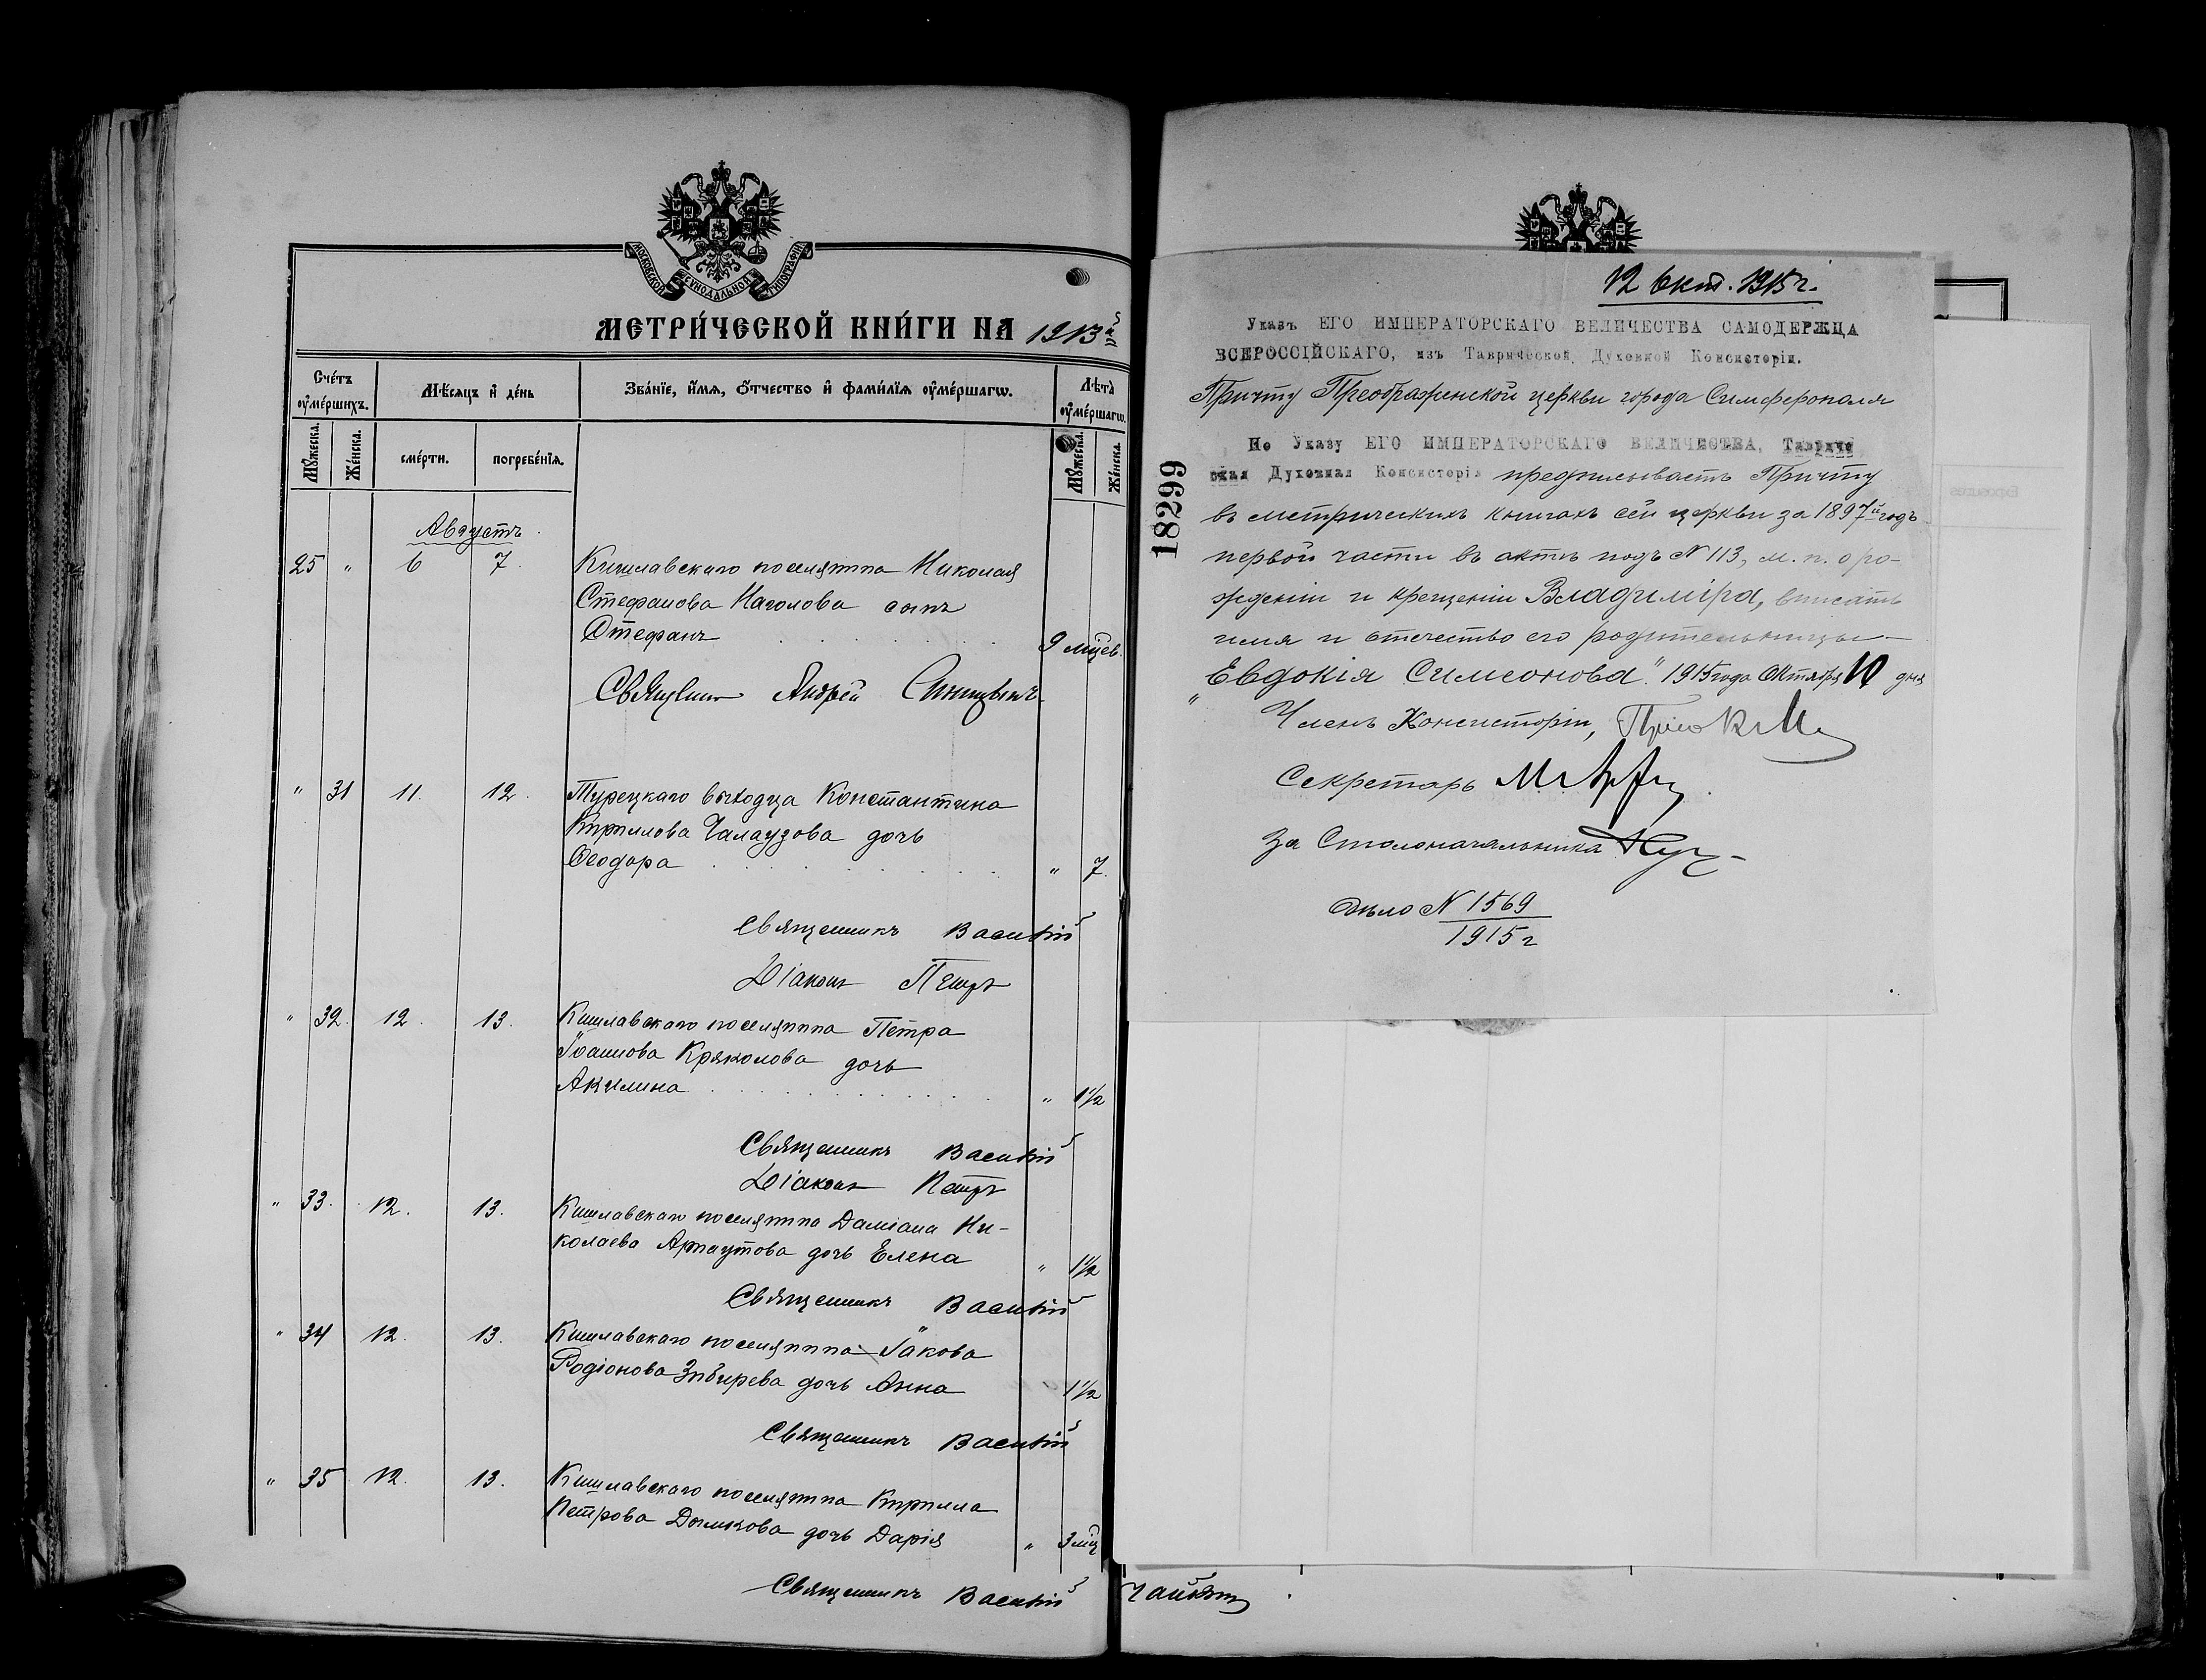 МОСКОВСКОЙ СУНОДАЛЬНОЙ ТИПОГРАФІИ
МЕТРИ́ЧЕСКОЙ КНИ́ГИ НА 1913й
Сче́тъ оу҆ме́ршихъ.
Мѣ́сяцъ и҆ де́нь
Зва́нїе, и҆́мѧ, ѻ҆́тчество и҆ фами́лїѧ оу҆ме́ршагѡ.
Лѣ́та оу҆ме́ршагѡ.
Мꙋ́жеска.
Же́нска.
сме́рти.
погребе́нїѧ.
Мꙋ́жеска.
Же́нска.
Августъ
25 " 6 7. Кишлавскаго поселянина Николая
Стефанова Наголова сынъ
Стефанъ 9 мѣцев.
Священникъ Андрей
" 31 11. 12. Турецкаго выходца Константина
Кириллова Чалаузова дочь
Ѳеодора " 7.
Священникъ Василій
Діаконъ Петръ
" 32. 12. 13. Кишлавскаго поселянина Петра
Іоаннова Кряколова дочь
Акилина " 1½
Священникъ Василій
Діаконъ Петръ
" 33. 12. 13. Кишлавскаго поселянина Даміана Ни-
колаева Арнаутова дочь Елена " 1½
Священникъ Василій
" 34 12. 13. Кишлавскаго поселянина Іакова
Родіонова Зибирева дочь Анна 1½
Священникъ Василій
" 35 12. 13. Кишлавскаго поселянина Кирилла
Петрова Дымкова дочь Дарія " 3 мѣц
Священникъ Василій
12 Окт. 1915 г.
Указъ ЕГО ИМПЕРАТОРСКАГО ВЕЛИЧЕСТВА САМОДЕРЖЦА
ВСЕРОССІЙСКАГО, изъ Таврической Духовной Консисторіи.
Причту Преображенской церкви города Симферополя
По Указу ЕГО ИМПЕРАТОРСКАГО ВЕЛИЧЕСТВА, Тавриче
ская Духовная Консисторія предписываетъ Причту
въ метрическихъ книгахъ сей церкви за 1897й годъ
первой части въ актѣ подъ № 113, м. п. о ро-
жденіи и крещеніи Владиміра, вписать
имя и отечество его родительницы—
"Евдокія Симеонова". 1915 года Октября 10 дня
Членъ Консисторіи,
Секретарь
За Столоначальника
Дѣло № 1569
1915 г
18299